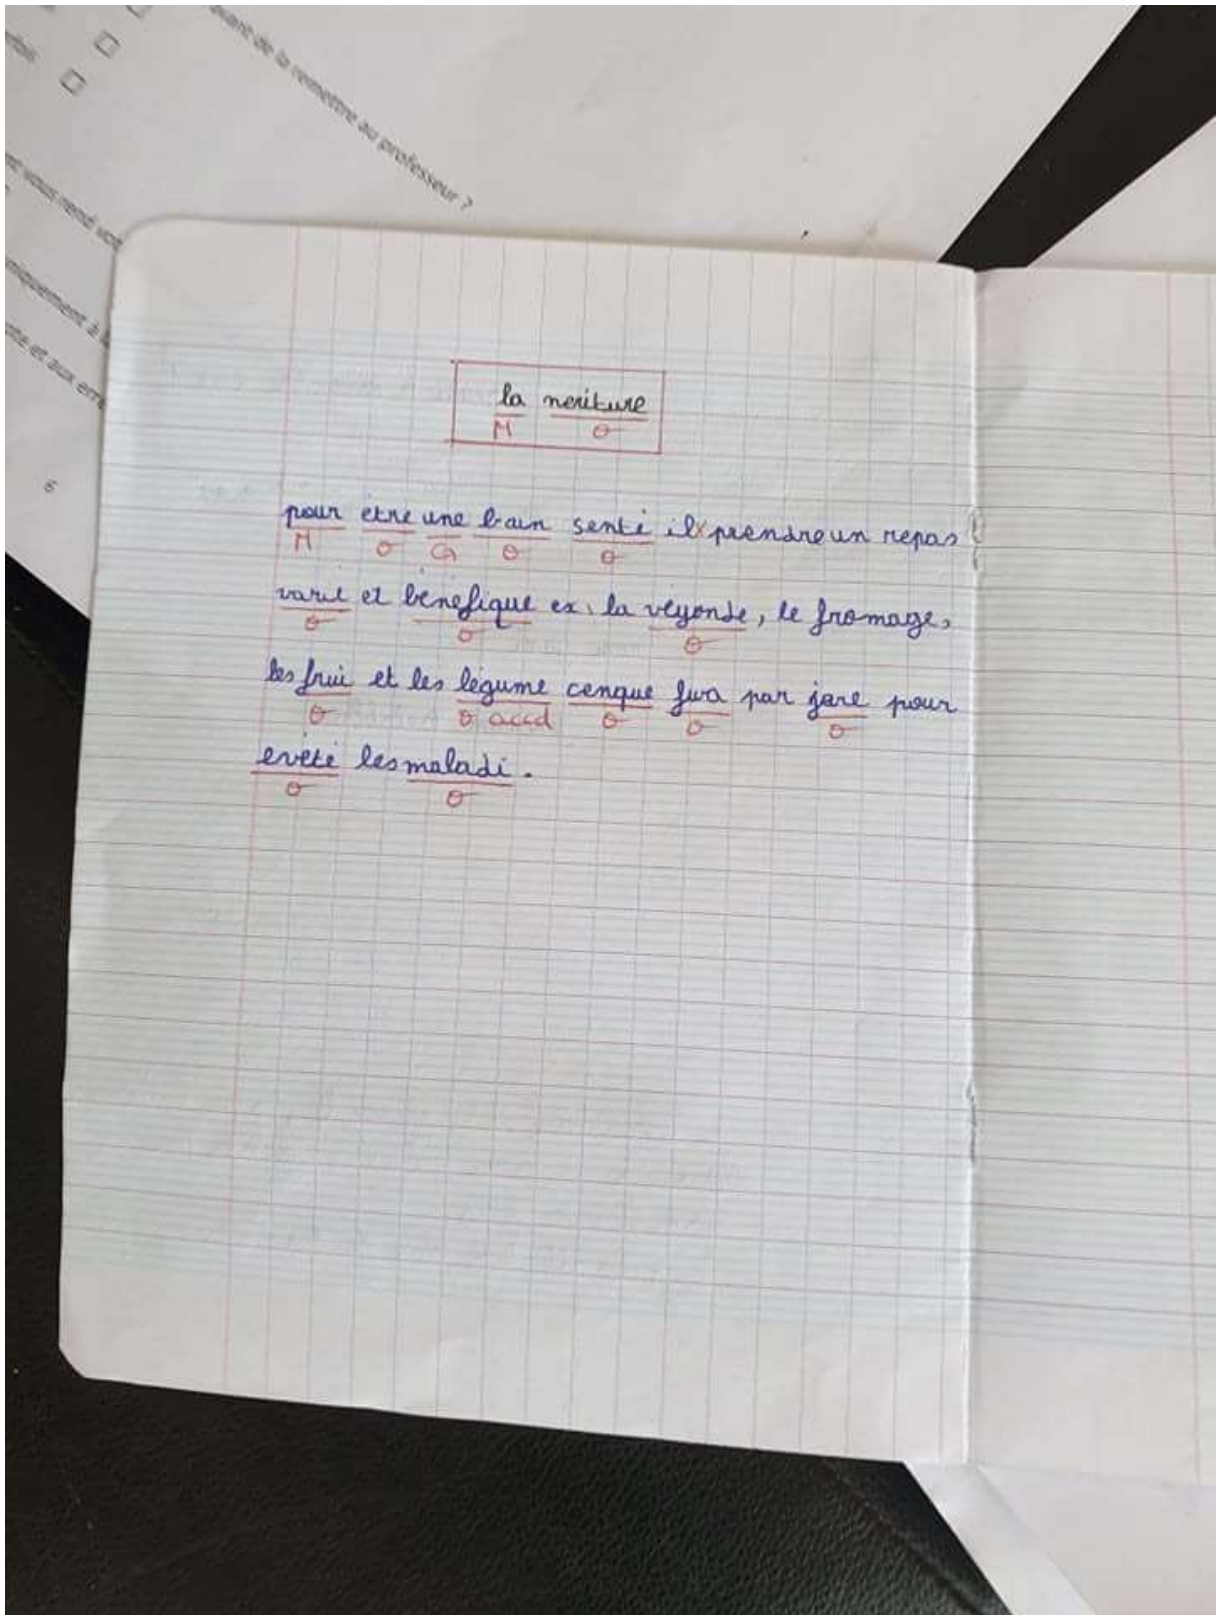 avant de la remettre au professeur ?
vous rend
et aux
6
la neriture
M O
pour etre une bain senté il x prendre un repas
M O G O O
varié et bénéfique ex, la véyonde, le fromage,
O O O
les frui et les légume cenque fwa par jare pour
O O accd O O O
evété les maladi.
O O